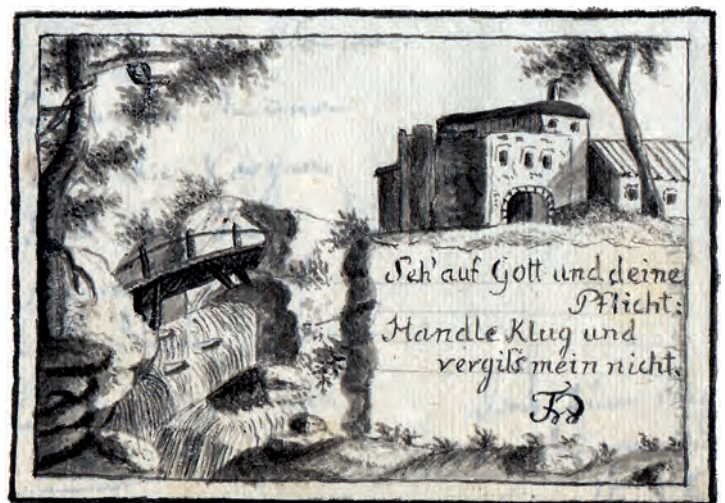 Seh' auf Gott und deine
Pflicht:
Handle Klug und
vergiß mein nicht.